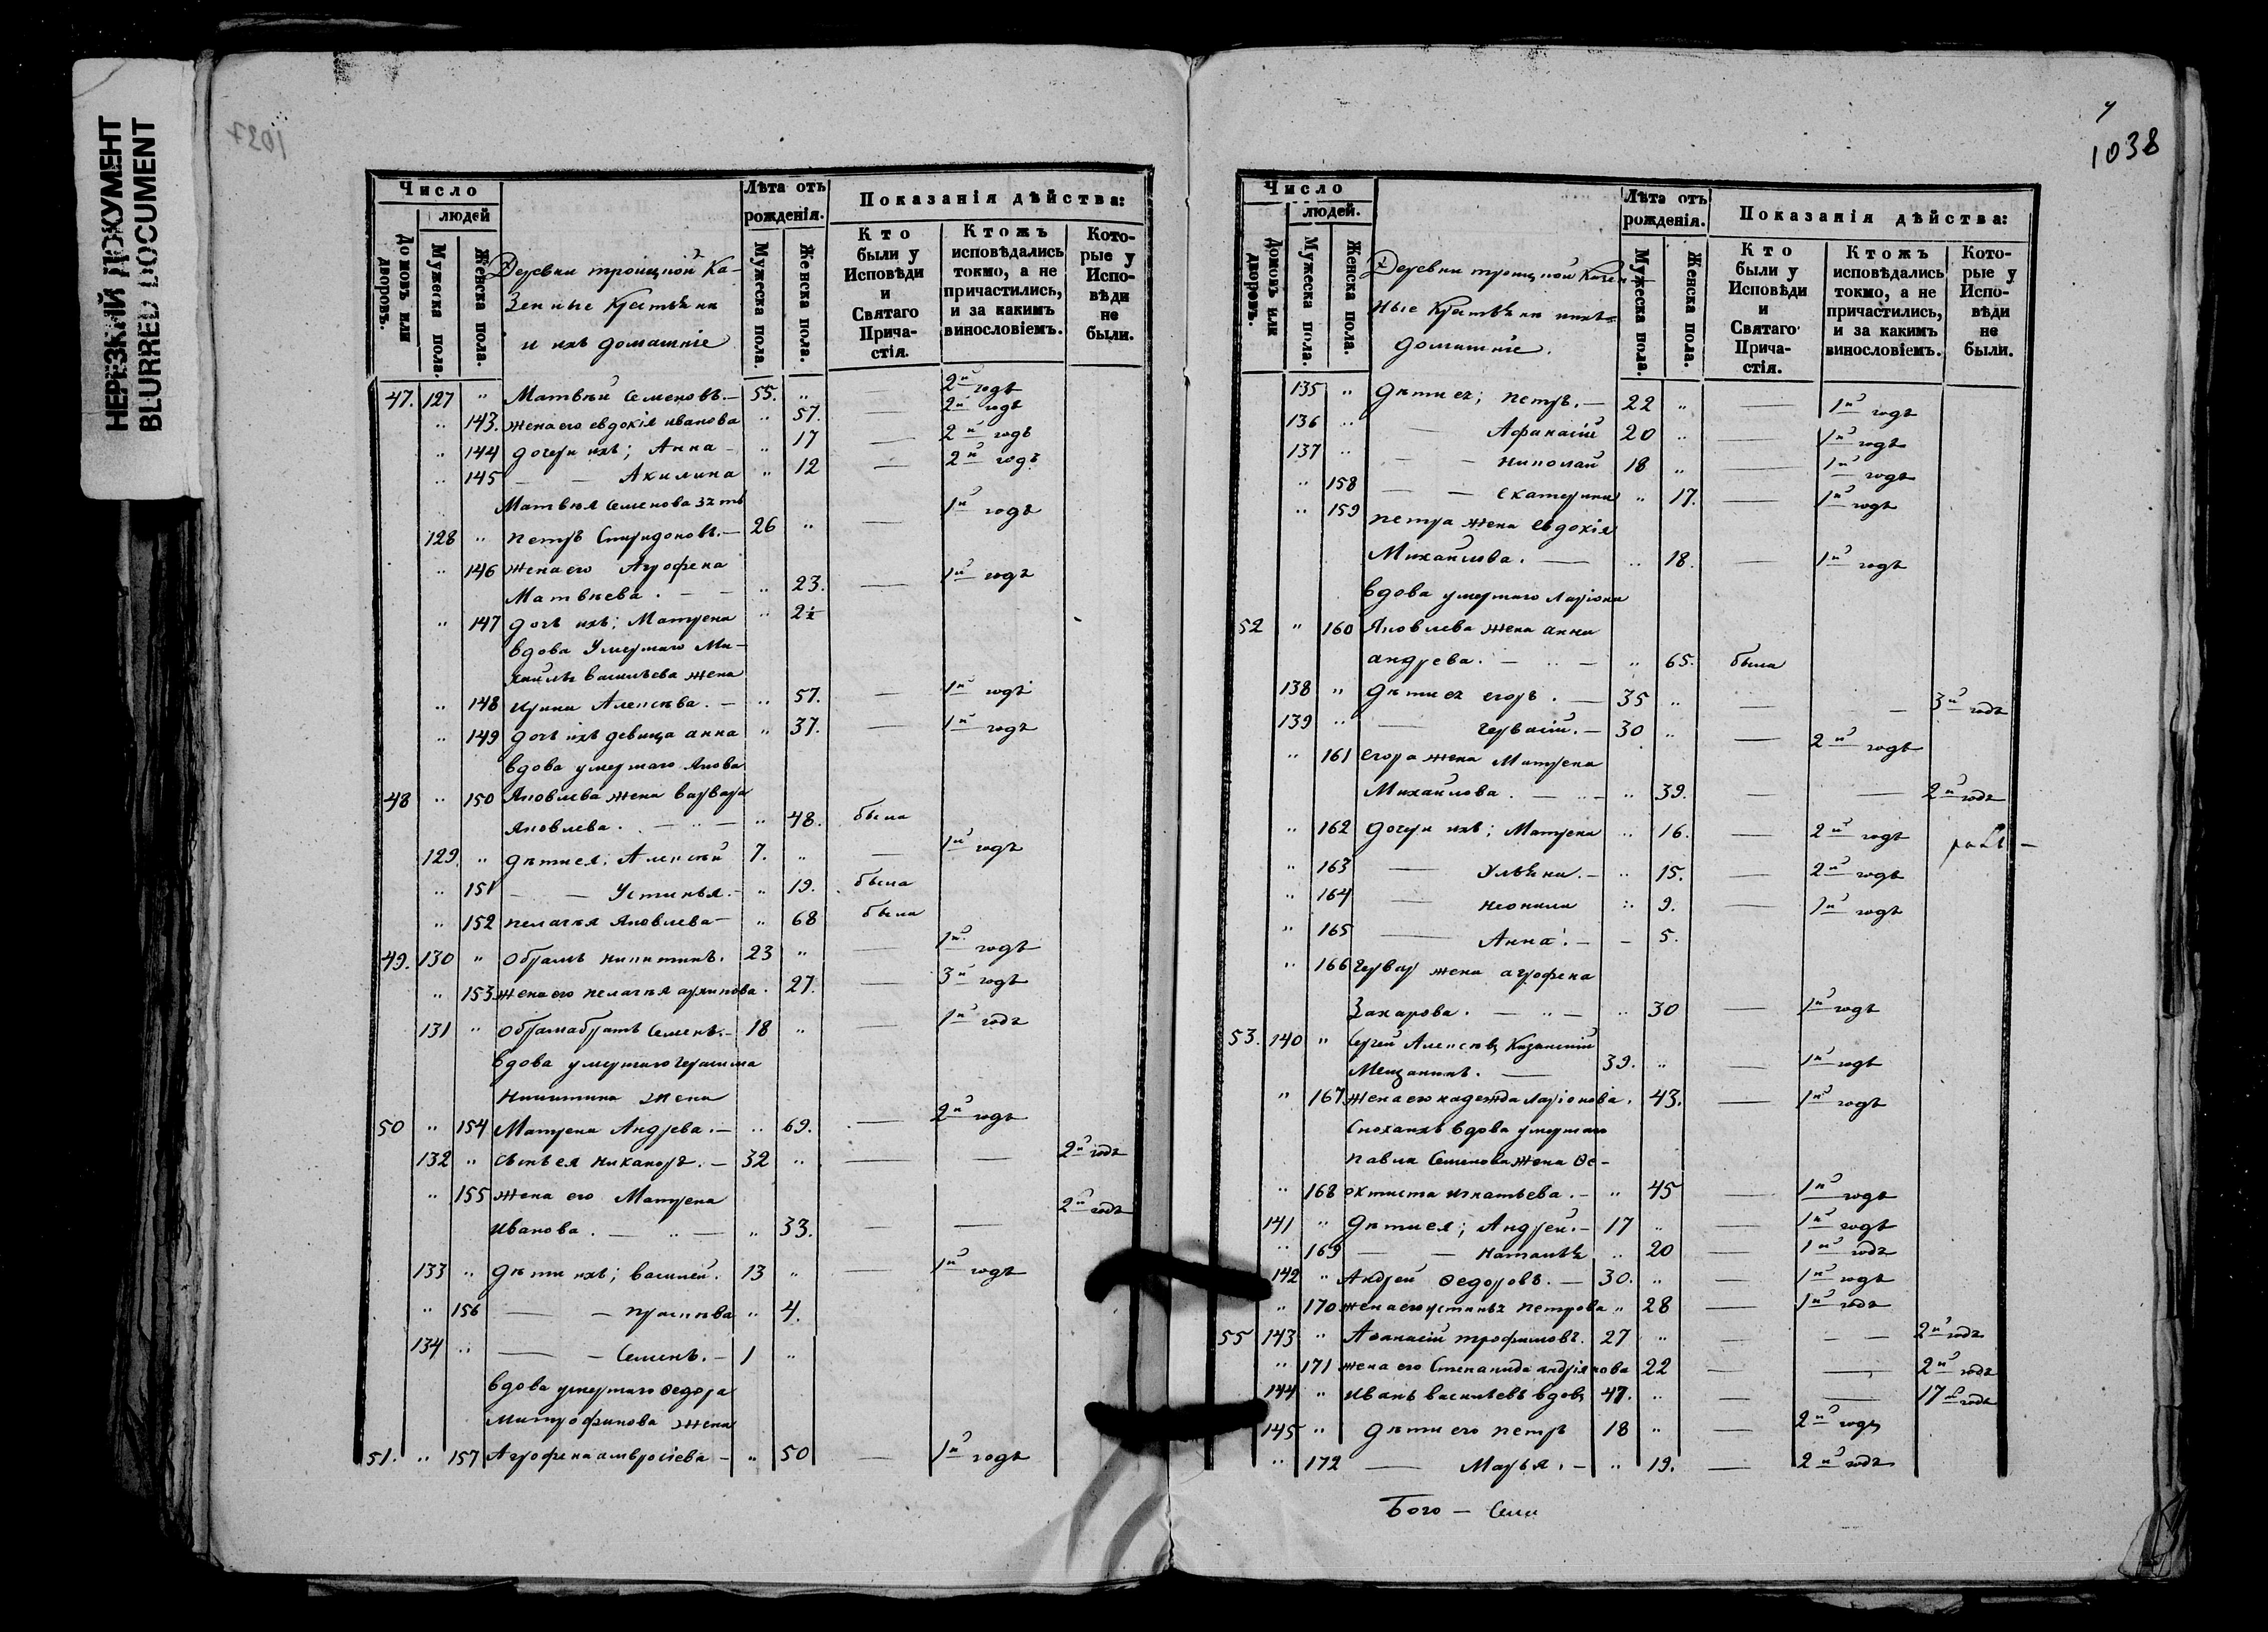 НЕРЕЗКИЙ ДОКУМЕНТ
BLURRED DOCUMENT
1037
Число
людей
Домовъ или дворовъ.
Мужеска пола.
Женска пола.
Деревни троицкой Ка-
зенные Крестьяне
и ихъ домашніе
Лѣта отъ рожденія.
Мужеска пола.
Женска пола.
Показанія дѣйства:
Кто были у Исповѣди и Святаго Причастія.
Ктожъ исповѣдались токмо, а не причастились, и за какимъ винословіемъ.
Которые у Исповѣди не были.
47. 127 " Матвѣй Семеновъ. — 55. " — 2й годъ
" 143. жена его евдокія иванова " 57. — 2й годъ
" 144 дочери ихъ; Анна — " 17 — 2й годъ
" 145 — — Акилина " 12 — 2й годъ
Матвѣя Семенова зять
128 " петръ Спиридоновъ. — 26 " — 1й годъ
" 146 жена его Агрофена
Матвѣева. — — " 23. — 1й годъ
" 147 дочь ихъ; Матрена " 2½
вдова умершаго Ми-
хаила васильева жена
" 148 ирина Алексѣва. — " 57. — 1й годъ
" 149 дочь ихъ девица анна " 37. — 1й годъ
вдова умершаго Якова
48 " 150 Яковлева жена варвара
Яковлева. — " — " 48. была
129. " дѣти ея; Алексѣй 7. " — 1й годъ
" 151 — — Устинья. — " 19. была
" 152 пелагея Яковлева — " 68 была
49. 130 " Обрамъ никитинъ. 23 " — 1й годъ
" 153 жена его пелагея архипова. 27. — 3й годъ
131 " Обрама братъ Семенъ. — 18 " — 1й годъ
вдова умершаго герасима
Никитина жена
50 " 154 Матрена Андрева. — " 69. — 2й годъ
132 " сынъ ея никаноръ. — 32 " — — 2й годъ
" 155 жена его Матрена
иванова. — " — " 33. — — 2й годъ
133 " дѣти ихъ; василей. 13 " — 1й годъ
" 156 — — прасковва " 4.
134 " — — Семенъ. — 1 "
вдова умершаго Ѳедора
митрофанова жена
51. " 157 Агрофена амвросіева — " 50 — 1й годъ
1038
Число
людей.
Домовъ или дворовъ.
Мужеска пола.
Женска пола.
Деревни троицкой Казен
ные Крестьяне ихъ
домашніе.
Лѣта отъ рожденія.
Мужеска пола.
Женска пола.
Показанія дѣйства:
Кто были у Исповѣди и Святаго Причастія.
Ктожъ исповѣдались токмо, а не причастились, и за какимъ винословіемъ.
Которые у Исповѣди не были.
135 " дѣти ея; петръ. — 22 " — 1й годъ
136 " — Афанасій 20 " — 1й годъ
137 " — — николай 18 " — 1й годъ
" 158 — — екатерина " 17. — 1й годъ
" 159 петра жена евдокія
Михайлова. — " 18. — 1й годъ
вдова умершаго Ларіона
52 " 160 Яковлева жена анна
андрева. — " — " 65. была
138 " дѣти ея егоръ. — 35 " — — 3й годъ
139 " — Гервасій. — 30 " — 2й годъ
" 161 егора жена Матрена
Михайлова. — " — " 39. — — 2й годъ
" 162 дочери ихъ; Матрена " 16. — 2й годъ
" 163 — Ульяна. — " 15. — 2й годъ
" 164 — неонила " 9. — 1й годъ
" 165 — Анна. — — 5.
" 166 Гервас жена агрофена
Захарова. — " — " 30 — 1й годъ
53. 140 " Сергей Алексѣвъ Казанскій
Мещанинъ. — 39. " — 1й годъ
" 167 жена его надежда Ларіонова. 43. — 1й годъ
Сноха ихъ вдова умершаго
павла Семенова жена Ѳе-
" 168 октиста игнатьева. — " 45 — 1й годъ
141 " дѣти ея; Андрей. — 17 " — 1й годъ
" 169 — — Наталья " 20 — 1й годъ
142 " Андрей Ѳедоровъ. — 30. " — 1й годъ
" 170 жена его устинья петрова " 28 — 1й годъ
55 143 " Аѳанасій трофимовъ. 27 " — — — 2й годъ
" 171 жена его Степанида андріянова 22 — — 2й годъ
144 " иванъ васильевъ вдовъ 47. " — — 17й годъ
145 " дѣти его петръ 18 " — 2й годъ
" 172 — Марья. — " 19. — 2й годъ
Бого — Сели